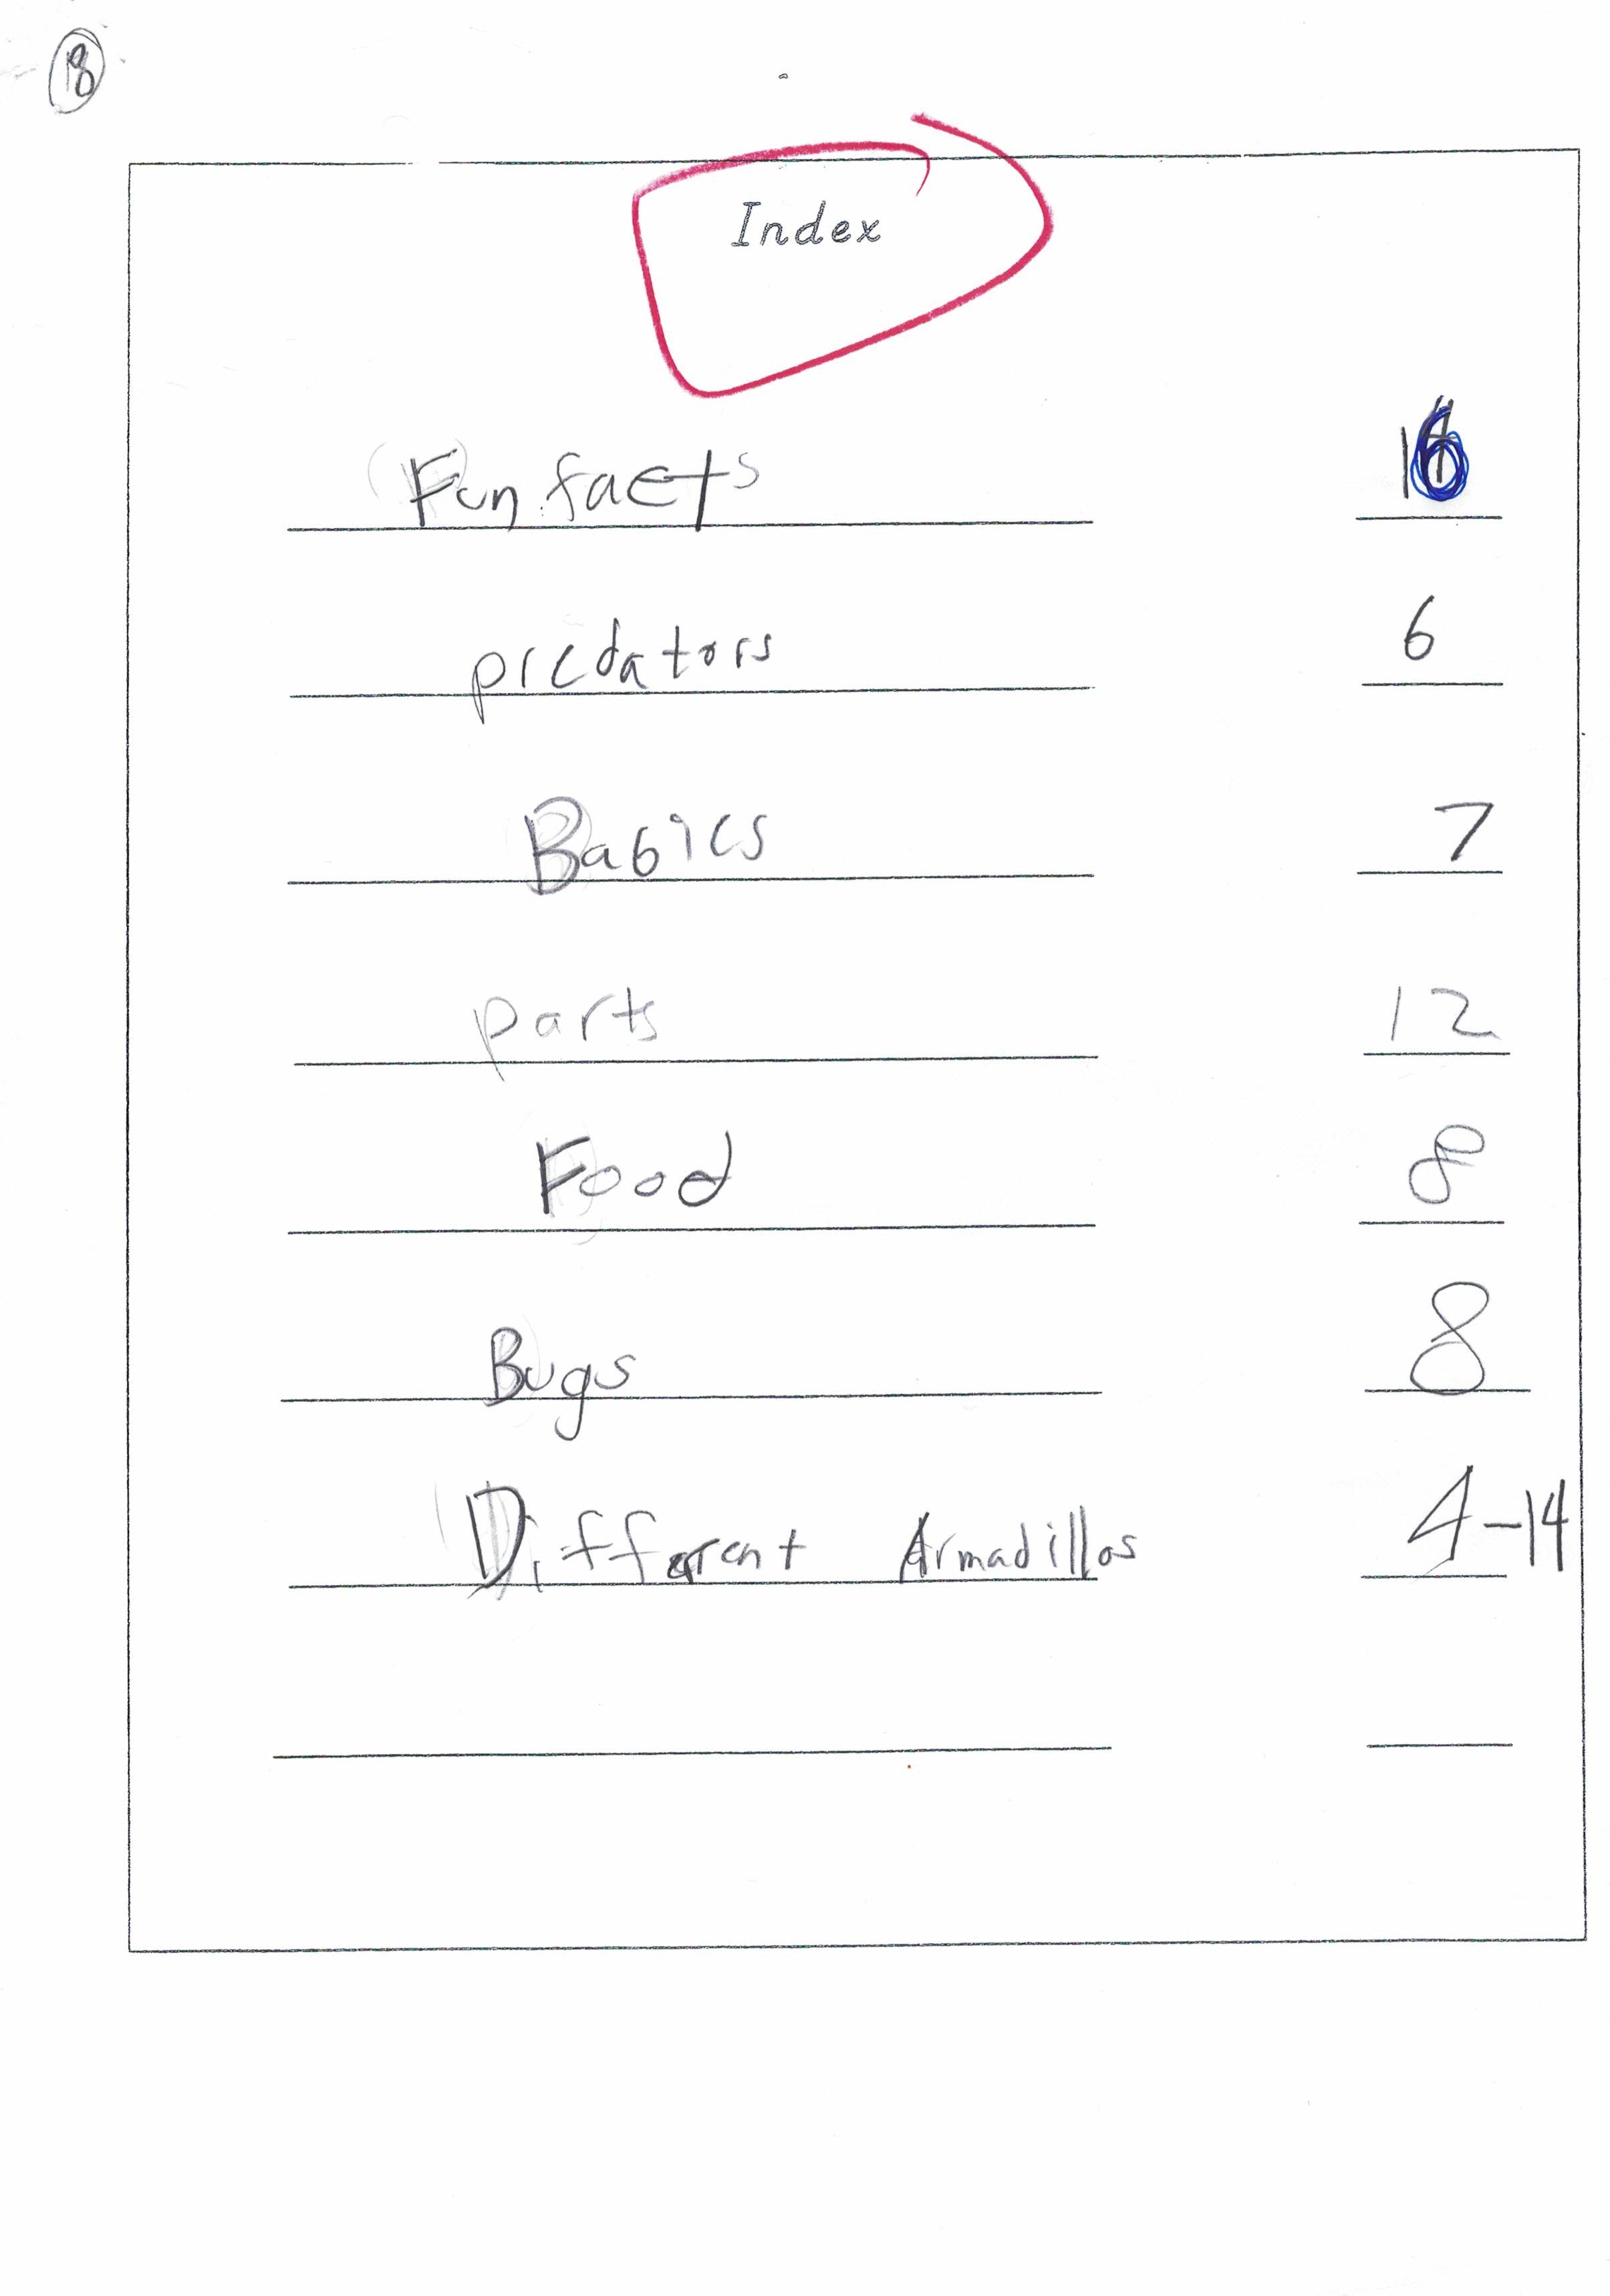 18
Index
Fun facts 16
predators 6
Babies 7
parts 12
Food 8
Bugs 8
Different Armadillos 4-14